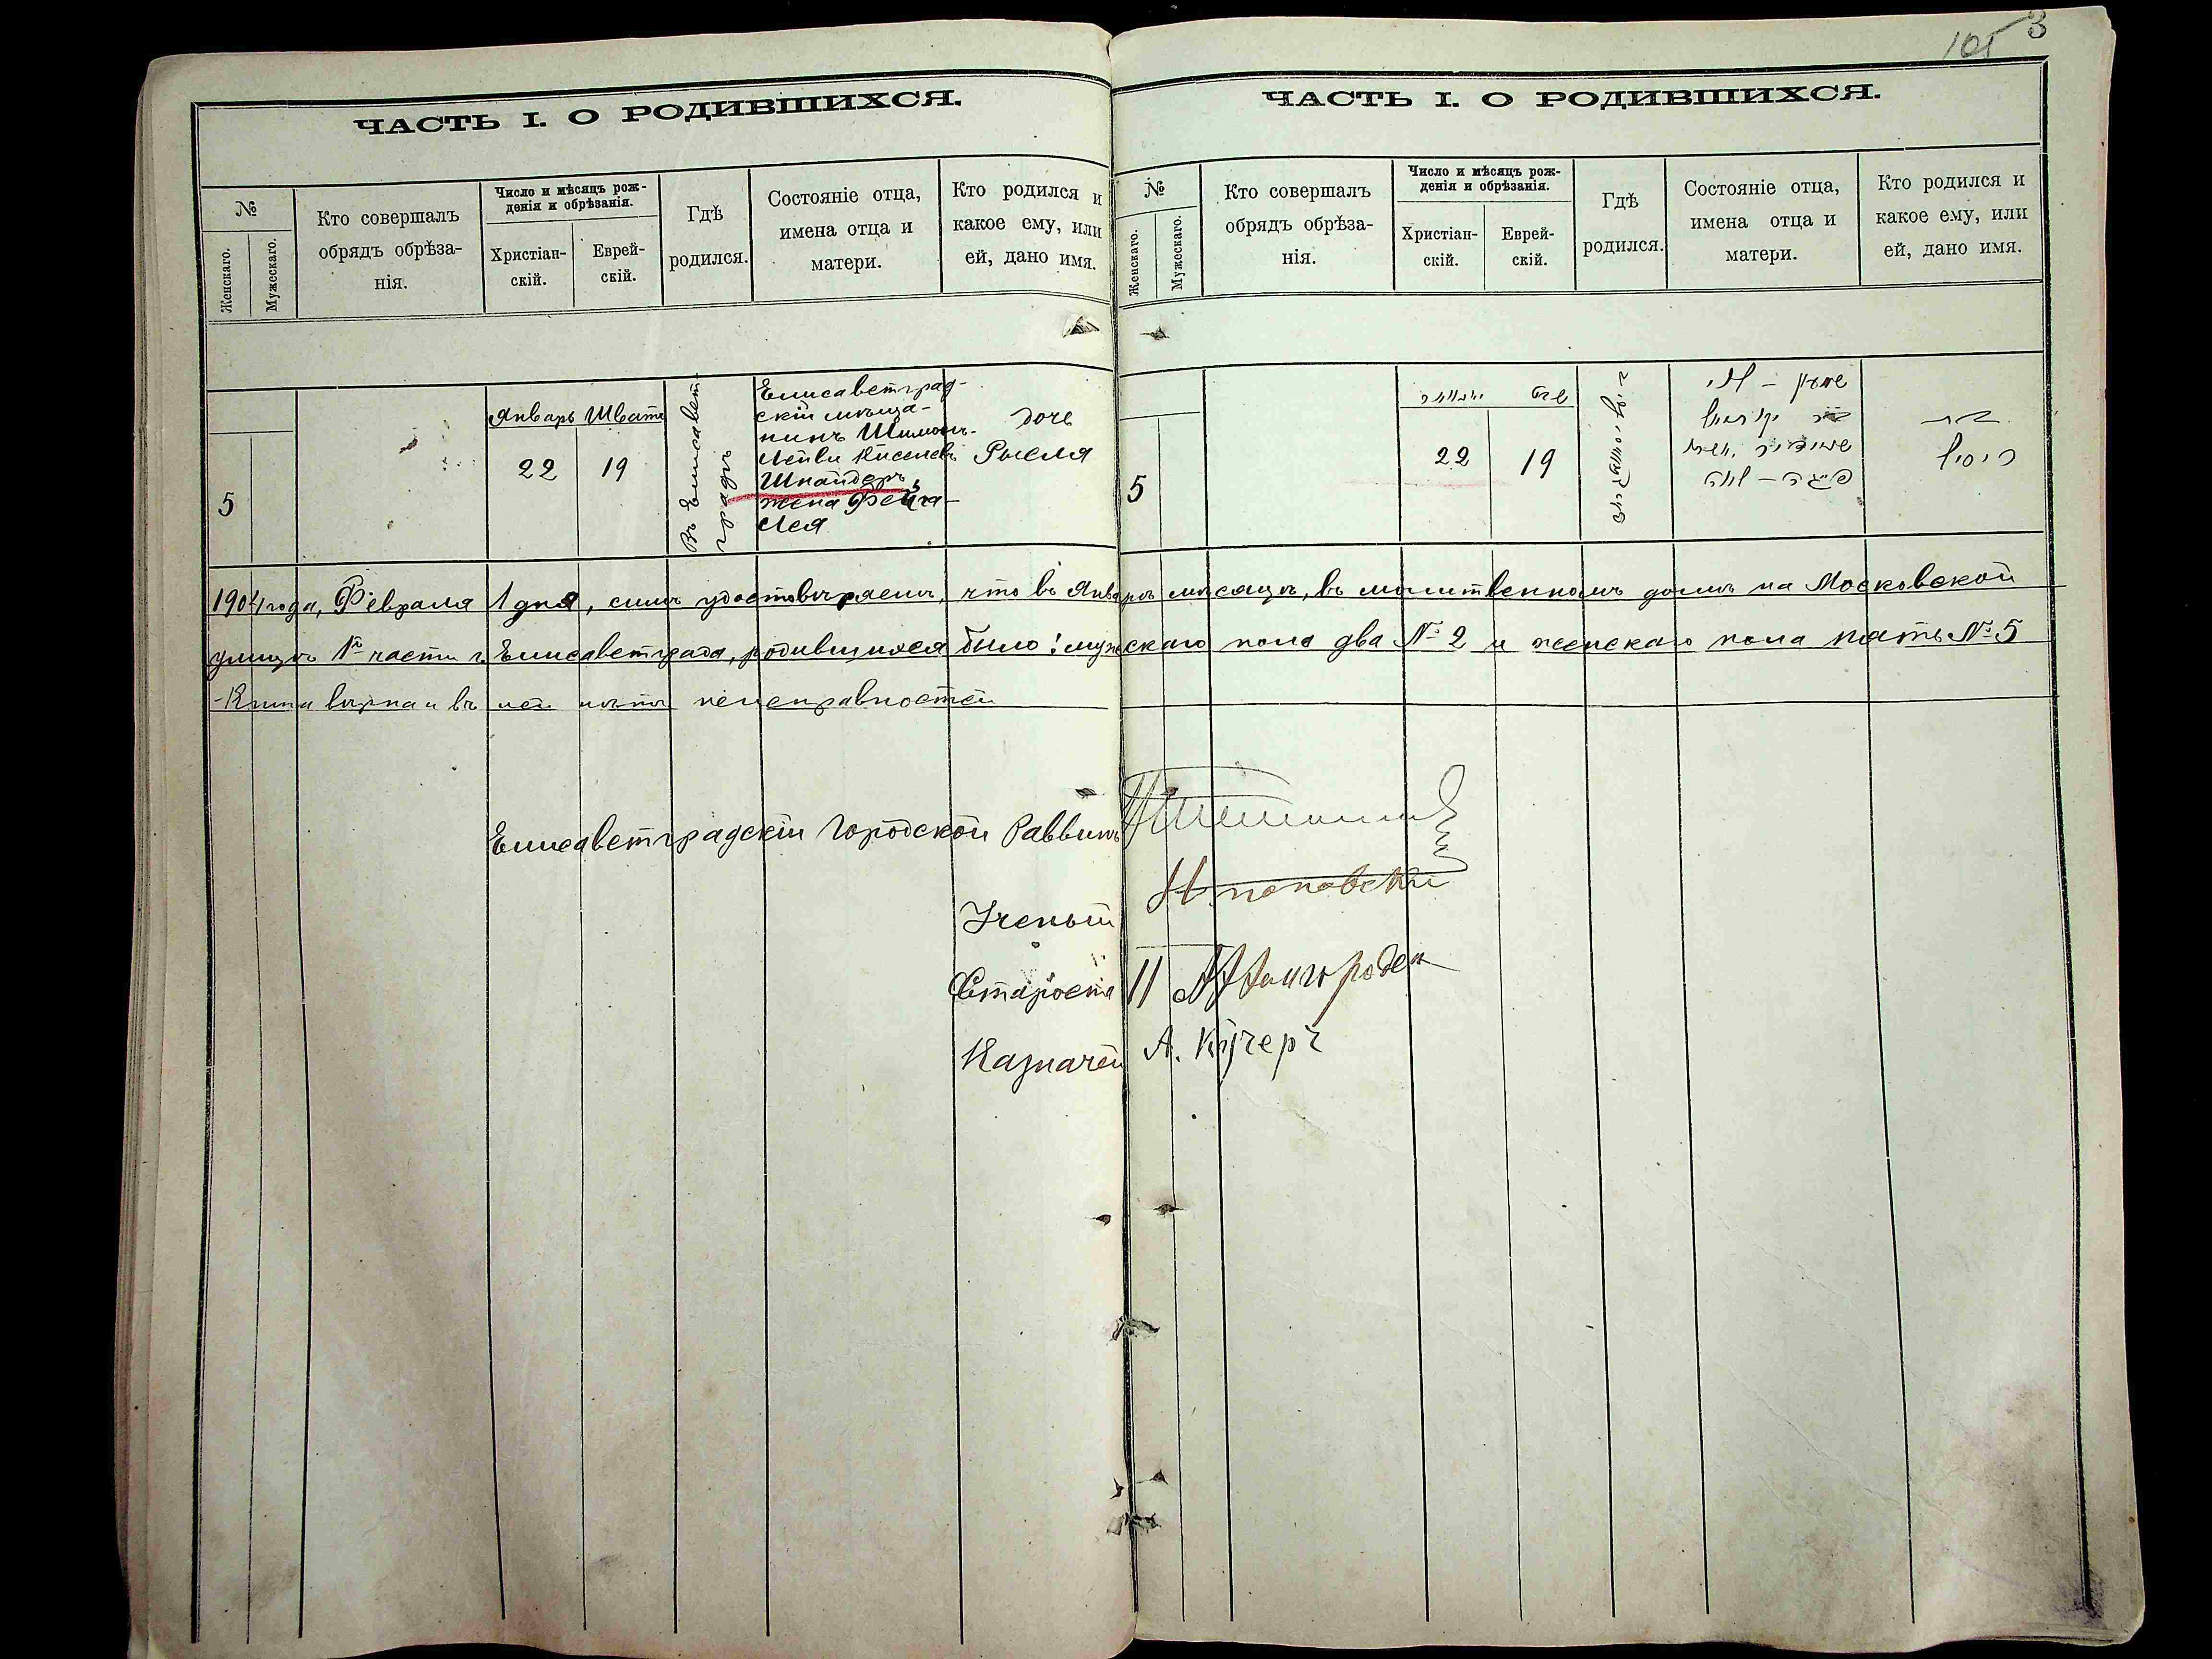 105 3
ЧАСТЬ I. О РОДИВШИХСЯ.
№
Женскаго.
Мужескаго.
Кто совершалъ
обрядъ обрѣза-
нія.
Число и мѣсяцъ рож-
денія и обрѣзанія.
Христіан-
скій.
Еврей-
скій.
Гдѣ
родился.
Состояніе отца,
имена отца и
матери.
Кто родился и
какое ему, или
ей, дано имя.
5
Январь Шватъ
22 19
Въ Елисавет-
градѣ
Елисаветград-
скій мѣща-
нинъ Шимонъ-
Лейви Киселевъ
Шнайдеръ,
жена Фейга-
Лея
дочь
Рыселя
ЧАСТЬ I. О РОДИВШИХСЯ.
№
Женскаго.
Мужескаго.
Кто совершалъ
обрядъ обрѣза-
нія.
Число и мѣсяцъ рож-
денія и обрѣзанія.
Христіан-
скій.
Еврей-
скій.
Гдѣ
родился.
Состояніе отца,
имена отца и
матери.
Кто родился и
какое ему, или
ей, дано имя.
5
יאנואר שבט
22 19
שמעון - לוי
שניידער
פייגא - לאה
בת
רייסיל
1904 года, Февраля 1 дня, симъ удостовѣряемъ, что въ Январѣ мѣсяцѣ, въ молитвенномъ домѣ на Московской
улицѣ 1й части г. Елисаветграда, родившихся было: мужескаго пола два № 2 и женскаго пола пять № 5
- Книга вѣрна и въ ней нѣтъ неисправностей
Елисаветградскій Городской Раввинъ
Ученый
Староста
Казначей А. Кучеръ